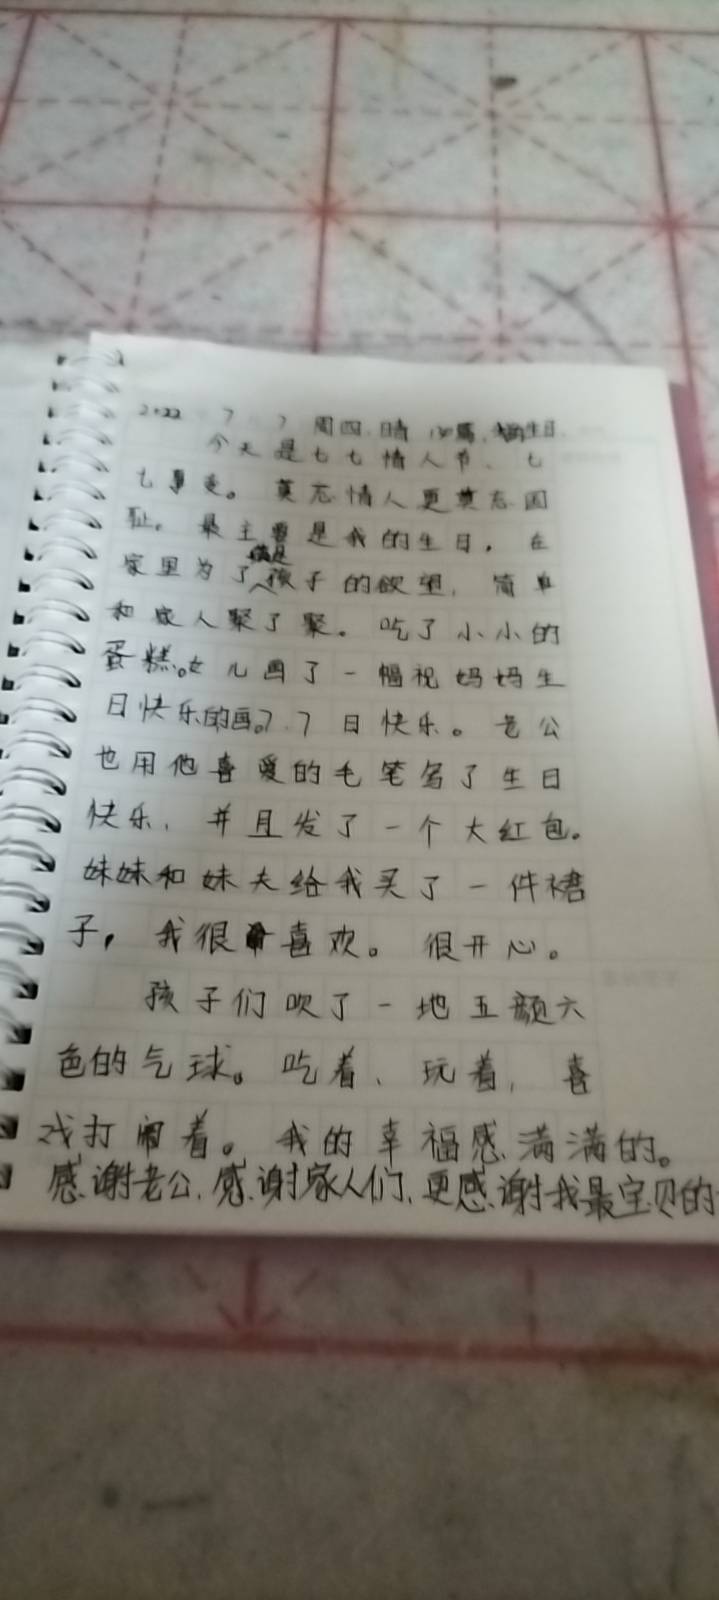 2022 7 7 周四.晴 生日.
今天是七七情人节、七
七事变。莫忘情人更莫忘国
耻。最主要是我的生日，在
家里为了满足孩子的欲望，简单
和家人聚了聚。吃了小小的
蛋糕。女儿画了一幅祝妈妈生
日快乐的画。7.7日快乐。老公
也用他喜爱的毛笔写了生日
快乐，并且发了一个大红包。
妹妹和妹夫给我买了一件裙
子，我很喜欢。很开心。
孩子们吹了一地五颜六
色的气球。吃着、玩着，喜
戏打闹着。我的幸福感满满的。
感谢老公，感谢家人们，更感谢我最宝贝的